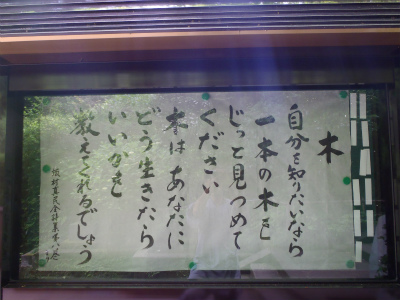 木
自分を知りたいなら
一本の木を
じっと見つめて
ください
木は あなたに
どう生きたら
いいかを
教えてくれるでしょう
坂村真民全詩集第八巻